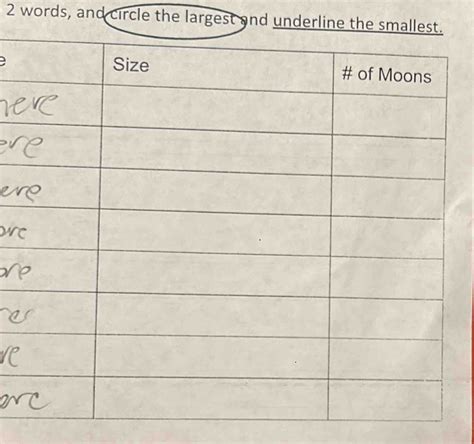 2 words, and circle the largest and underline the smallest.
e Size # of Moons
here
ere
ere
ore
ore
re
ore